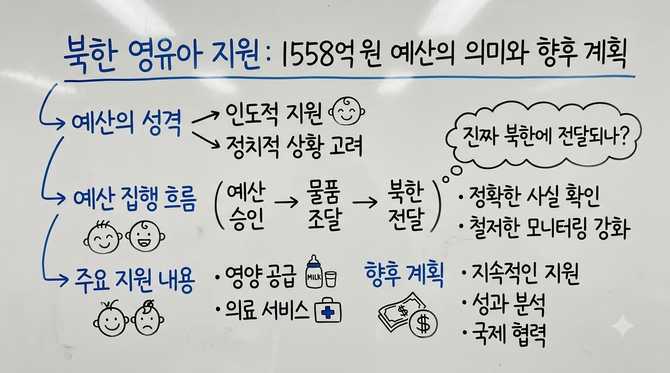 북한 영유아 지원: 1558억 원 예산의 의미와 향후 계획
예산의 성격
인도적 지원
정치적 상황 고려
진짜 북한에 전달되나?
예산 집행 흐름
(예산 승인 → 물품 조달 → 북한 전달)
• 정확한 사실 확인
• 철저한 모니터링 강화
주요 지원 내용
• 영양 공급
MILK
• 의료 서비스
향후 계획
$
$
• 지속적인 지원
• 성과 분석
• 국제 협력